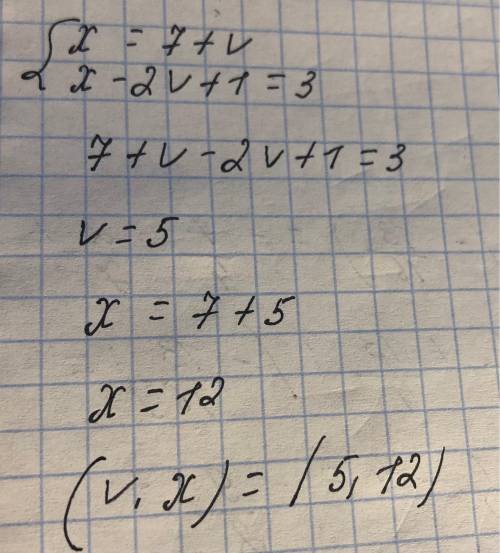 { x = 7 + v
x - 2v + 1 = 3
7 + v - 2v + 1 = 3
v = 5
x = 7 + 5
x = 12
(v, x) = (5, 12)